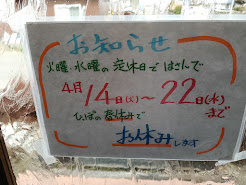 お知らせ
火曜、水曜の定休日をはさんで
4月14日(火)〜22日(水)まで
ひっぽの春休みで
お休みします